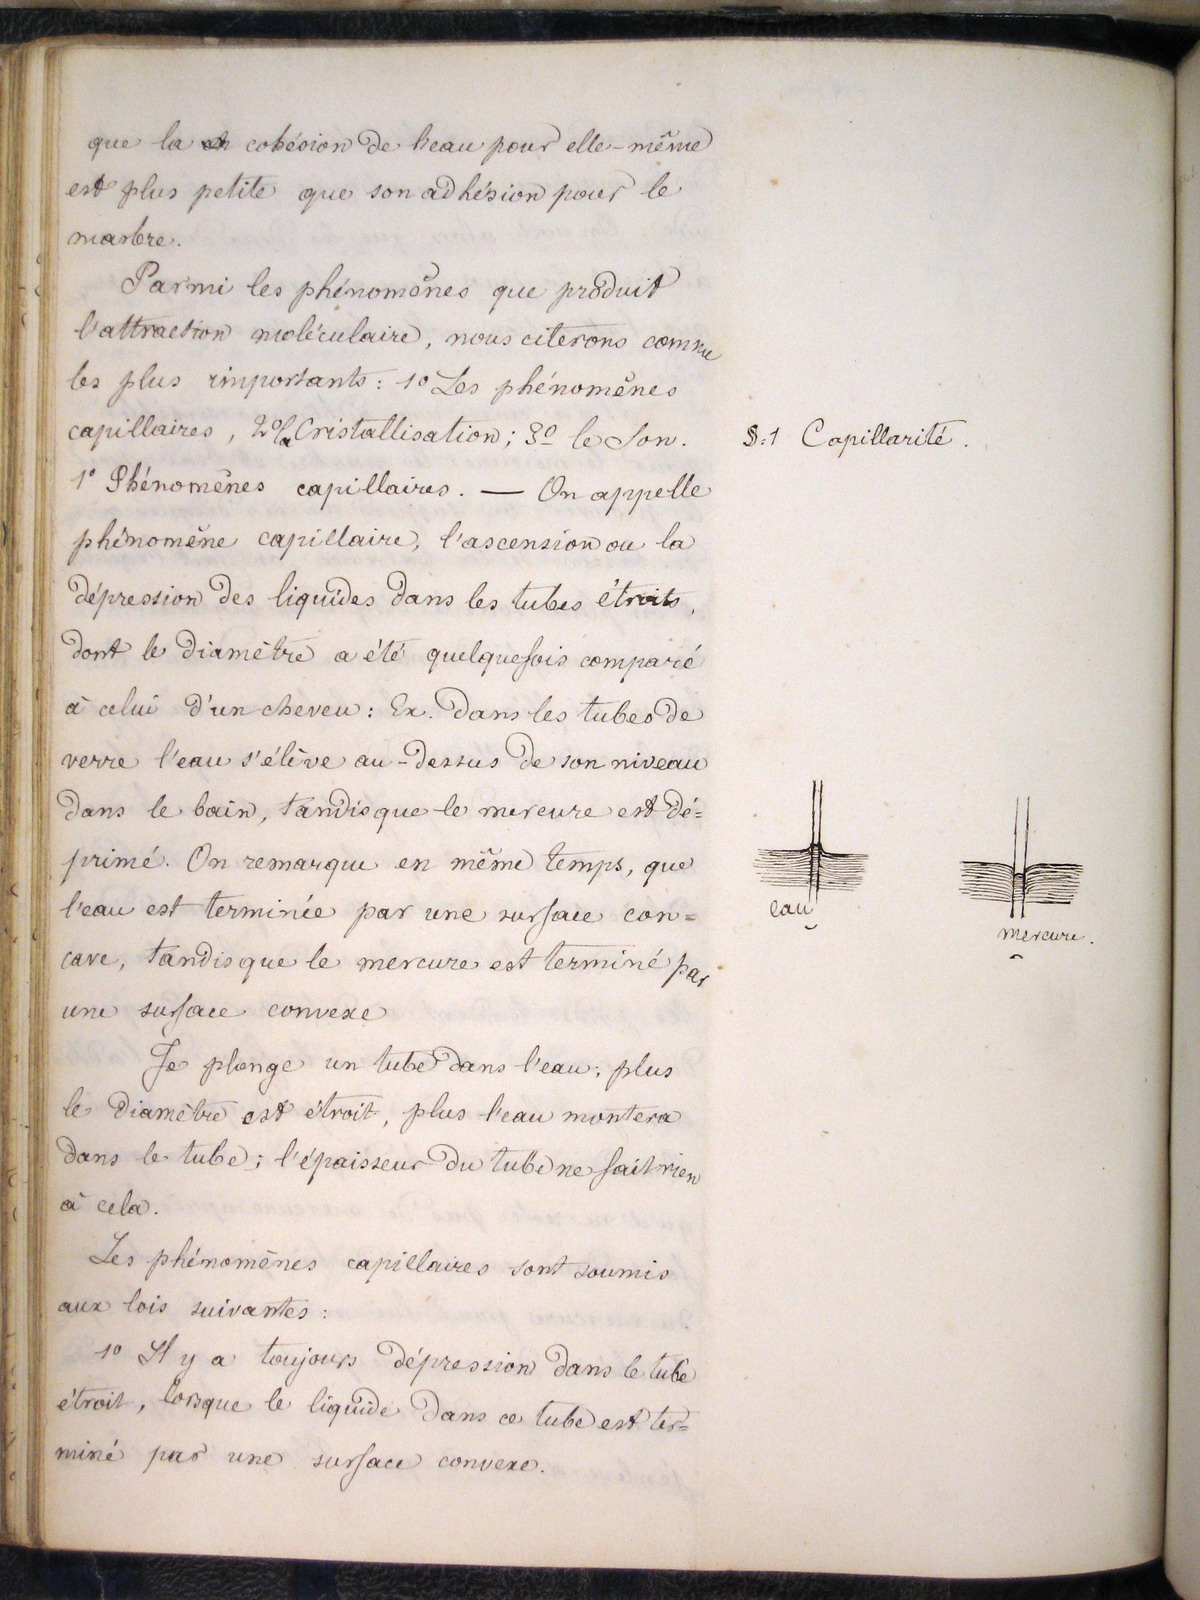 que la cohésion de l'eau pour elle-même
est plus petite que son adhésion pour le
marbre.
Parmi les phénomènes que produit
l'attraction moléculaire, nous citerons comme
les plus importants : 1o Les phénomènes
capillaires, 2o la Cristallisation ; 3o le Son.
§.1 Capillarité.
1o Phénomènes capillaires. — On appelle
phénomène capillaire, l'ascension ou la
dépression des liquides dans les tubes étroits,
dont le diamètre a été quelquefois comparé
à celui d'un cheveu : Ex. Dans les tubes de
verre l'eau s'élève au-dessus de son niveau
dans le bain, tandis que le mercure est dé=
primé. On remarque en même temps, que
l'eau est terminée par une surface con=
cave, tandis que le mercure est terminé par
une surface convexe
eau
mercure.
Je plonge un tube dans l'eau ; plus
le diamètre est étroit, plus l'eau montera
dans le tube ; l'épaisseur du tube ne fait rien
à cela.
Les phénomènes capillaires sont soumis
aux lois suivantes :
1o Il y a toujours dépression dans le tube
étroit, lorsque le liquide dans ce tube est ter=
miné par une surface convexe.